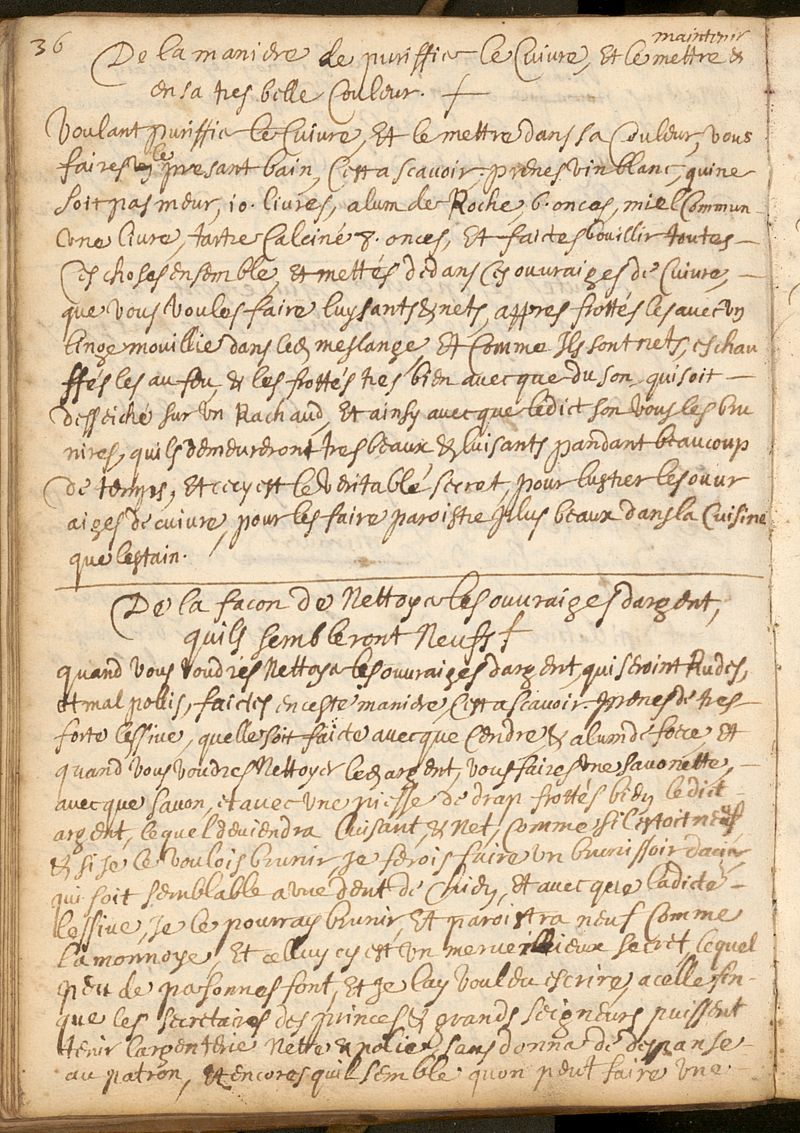 36
maintenir
De la maniere de puriffier le Cuivre, Et le mettre &
en sa tres belle Couleur.
Voulant puriffier le Cuivre, Et le mettre dans sa Couleur, vous
faires le presant bain, C'est a scavoir, prenes vin blanc, qui ne
soit pas meur, 10. livres, alum de Roche, 6. onces, miel Commun
une livre, tartre Calciné 8. onces, Et faictes bouillir toutes
Ces choses ensemble, et mettés dedans les ouvraiges de Cuivre,
que vous voules faire luysants & nets, appres frottés les avec un
linge mouillie dans led meslange Et Comme Ils sont nets, eschau
ffés les au feu, & les frottés tres bien avecque du son, qui soit
desseiché sur un Rachaud, Et ainsy avecque ledict son vous les bru
nires, quils demeureront tres beaux & luisants pandant beaucoup
de temps, Et cecy est le veritable secret pour lustrer les ouvr
aiges de cuivre, pour les faire paroistre plus beaux dans la Cuisine
que lestain.
De la facon de Nettoyer les ouvraiges dargent,
quils sembleront Neufs
quand vous voudres Nettoyer les ouvraiges dargent, qui seroint Rudes,
et mal pollis, faictes en ceste maniere, C'est a scavoir. prenes de tres
forte lessive, quelle soit faicte avecque Cendre, & alum de foece, Et
quand vous voudres Nettoyer led argent, vous faires une savonette,
avecque savon, et avec une piesse de drap frottés bien ledict
argent, lequel deviendra luisant, & Net, Comme sil estoit neuf
& si Je le voulois brunir, Je ferois faire un brunissoir dacier
qui soit semblable a une dent de Chien, Et avecque ladicte
lessive, Je le pourray brunir, Et paroistra neuf Comme
la monnoye, Et celluy cy est un merveillieux secret, lequel
peu de personnes font, Et Je lay vouleu escrire, acelle fin
que les secretaires des princes & grands seigneurs puissent
tenir largenterie Nette & polie, sans donner de despanse
au patron, Et encores quil semble quon peut faire une